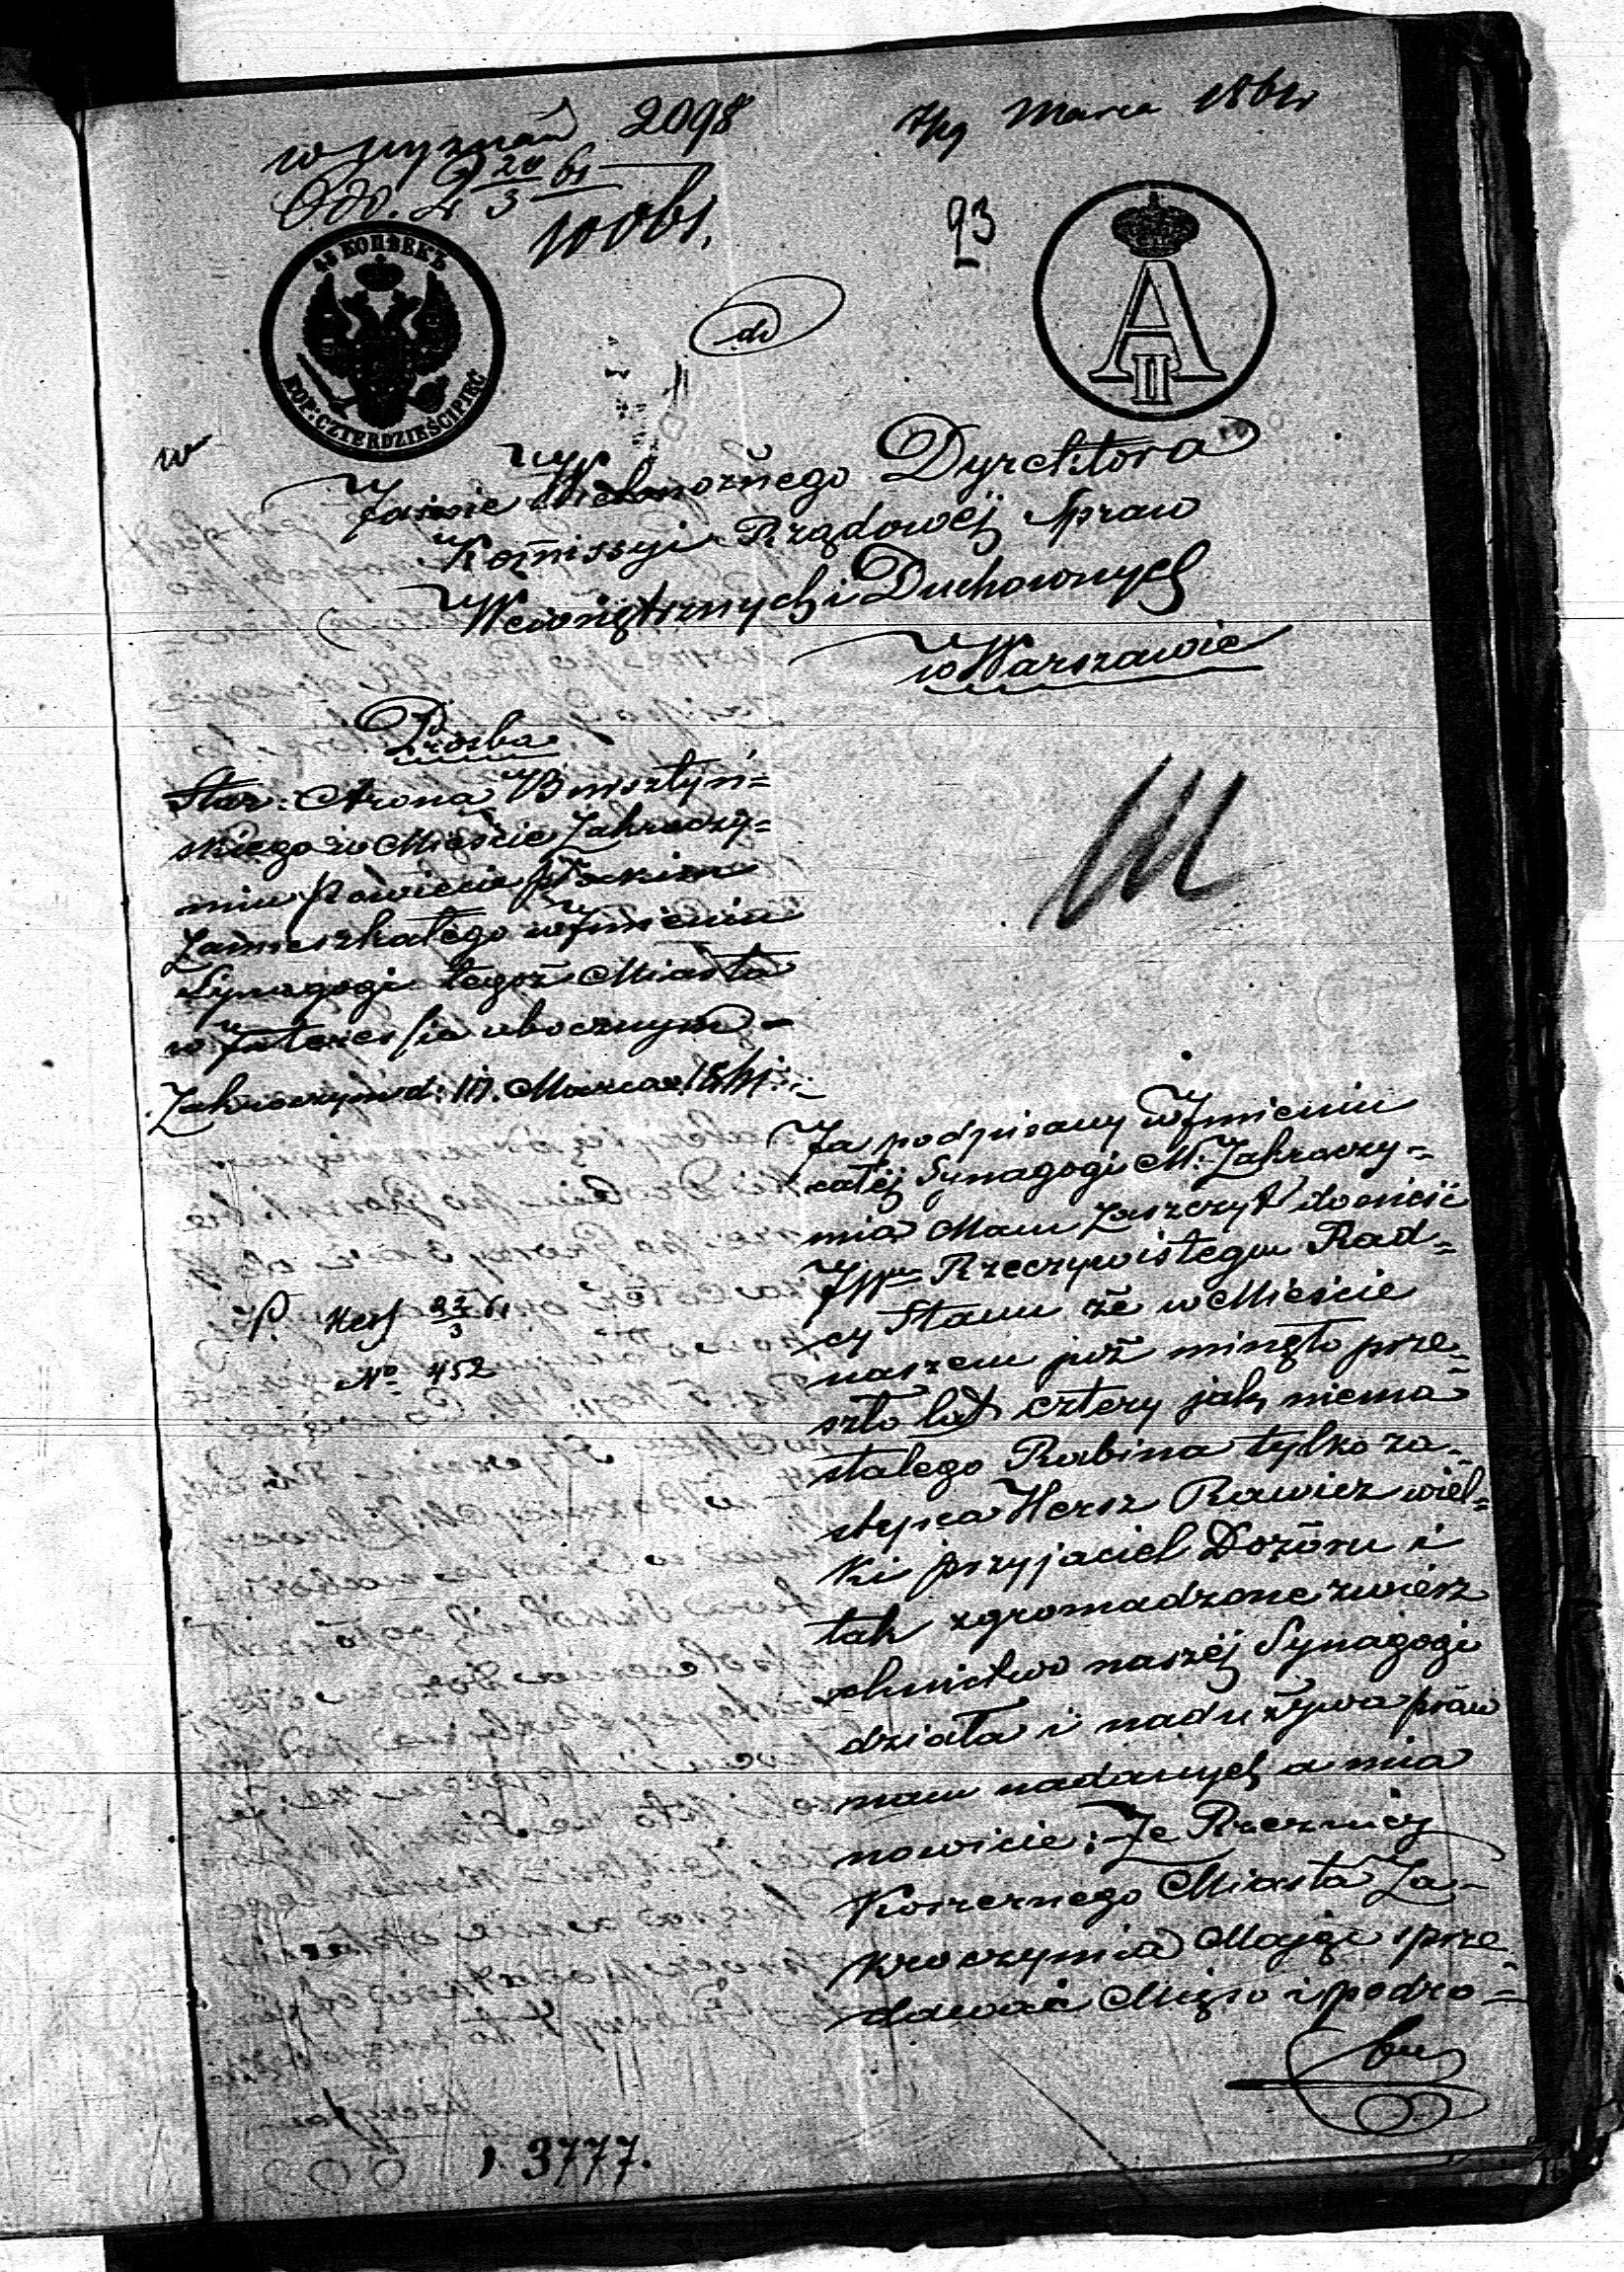 w wyznań 2098
7/19 Marca 1861r
Odd. 2 20/3 61
10061.
93
45 КОПѢЕКЪ
KOP: CZTERDZIEŚCI PIĘĆ
A II
do
w
Jaśnie Wielmożnego Dyrektora
Kommissyi Rządowéj Spraw
Wewnętrznych i Duchownych
w Warszawie
Prozba
Star: Arona Bursztyń=
skiego w Mieście Zakroczy=
miu Powiecie Płockim
Zamieszkałego w Imieniu
Synagogi tegoż Miasta
w Interessie ubocznym –
Zakroczym d: 10. Marca 1861.
P. 22/3 61
No 452
Ja podpisany w Imieniu
całéj Synagogi M: Zakroczy=
mia Mam Zaszczyt donieść
JWu Rzeczywistegu Rad=
cy Stanu że w Mieście
naszem już minęło prze=
szło lat cztery jak niema
stalego Rabina tylko za=
stępca Hersz Rawicz wiel=
ki przyjaciel Dozoru i
tak zgromadzone zwierz
chnictwo naszéj Synagogi
działa i nadużywa praw
nam nadanych a mia
nowicie: Że Rzeznicy
Koszernego Miasta Za=
kroczymia Mając sprze=
dawać Mięso i podro=
bu
3777.